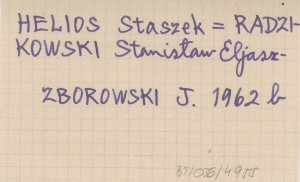 HELIOS Staszek = RADZI-
KOWSKI Stanisław Eljasz-
ZBOROWSKI J. 1962 b